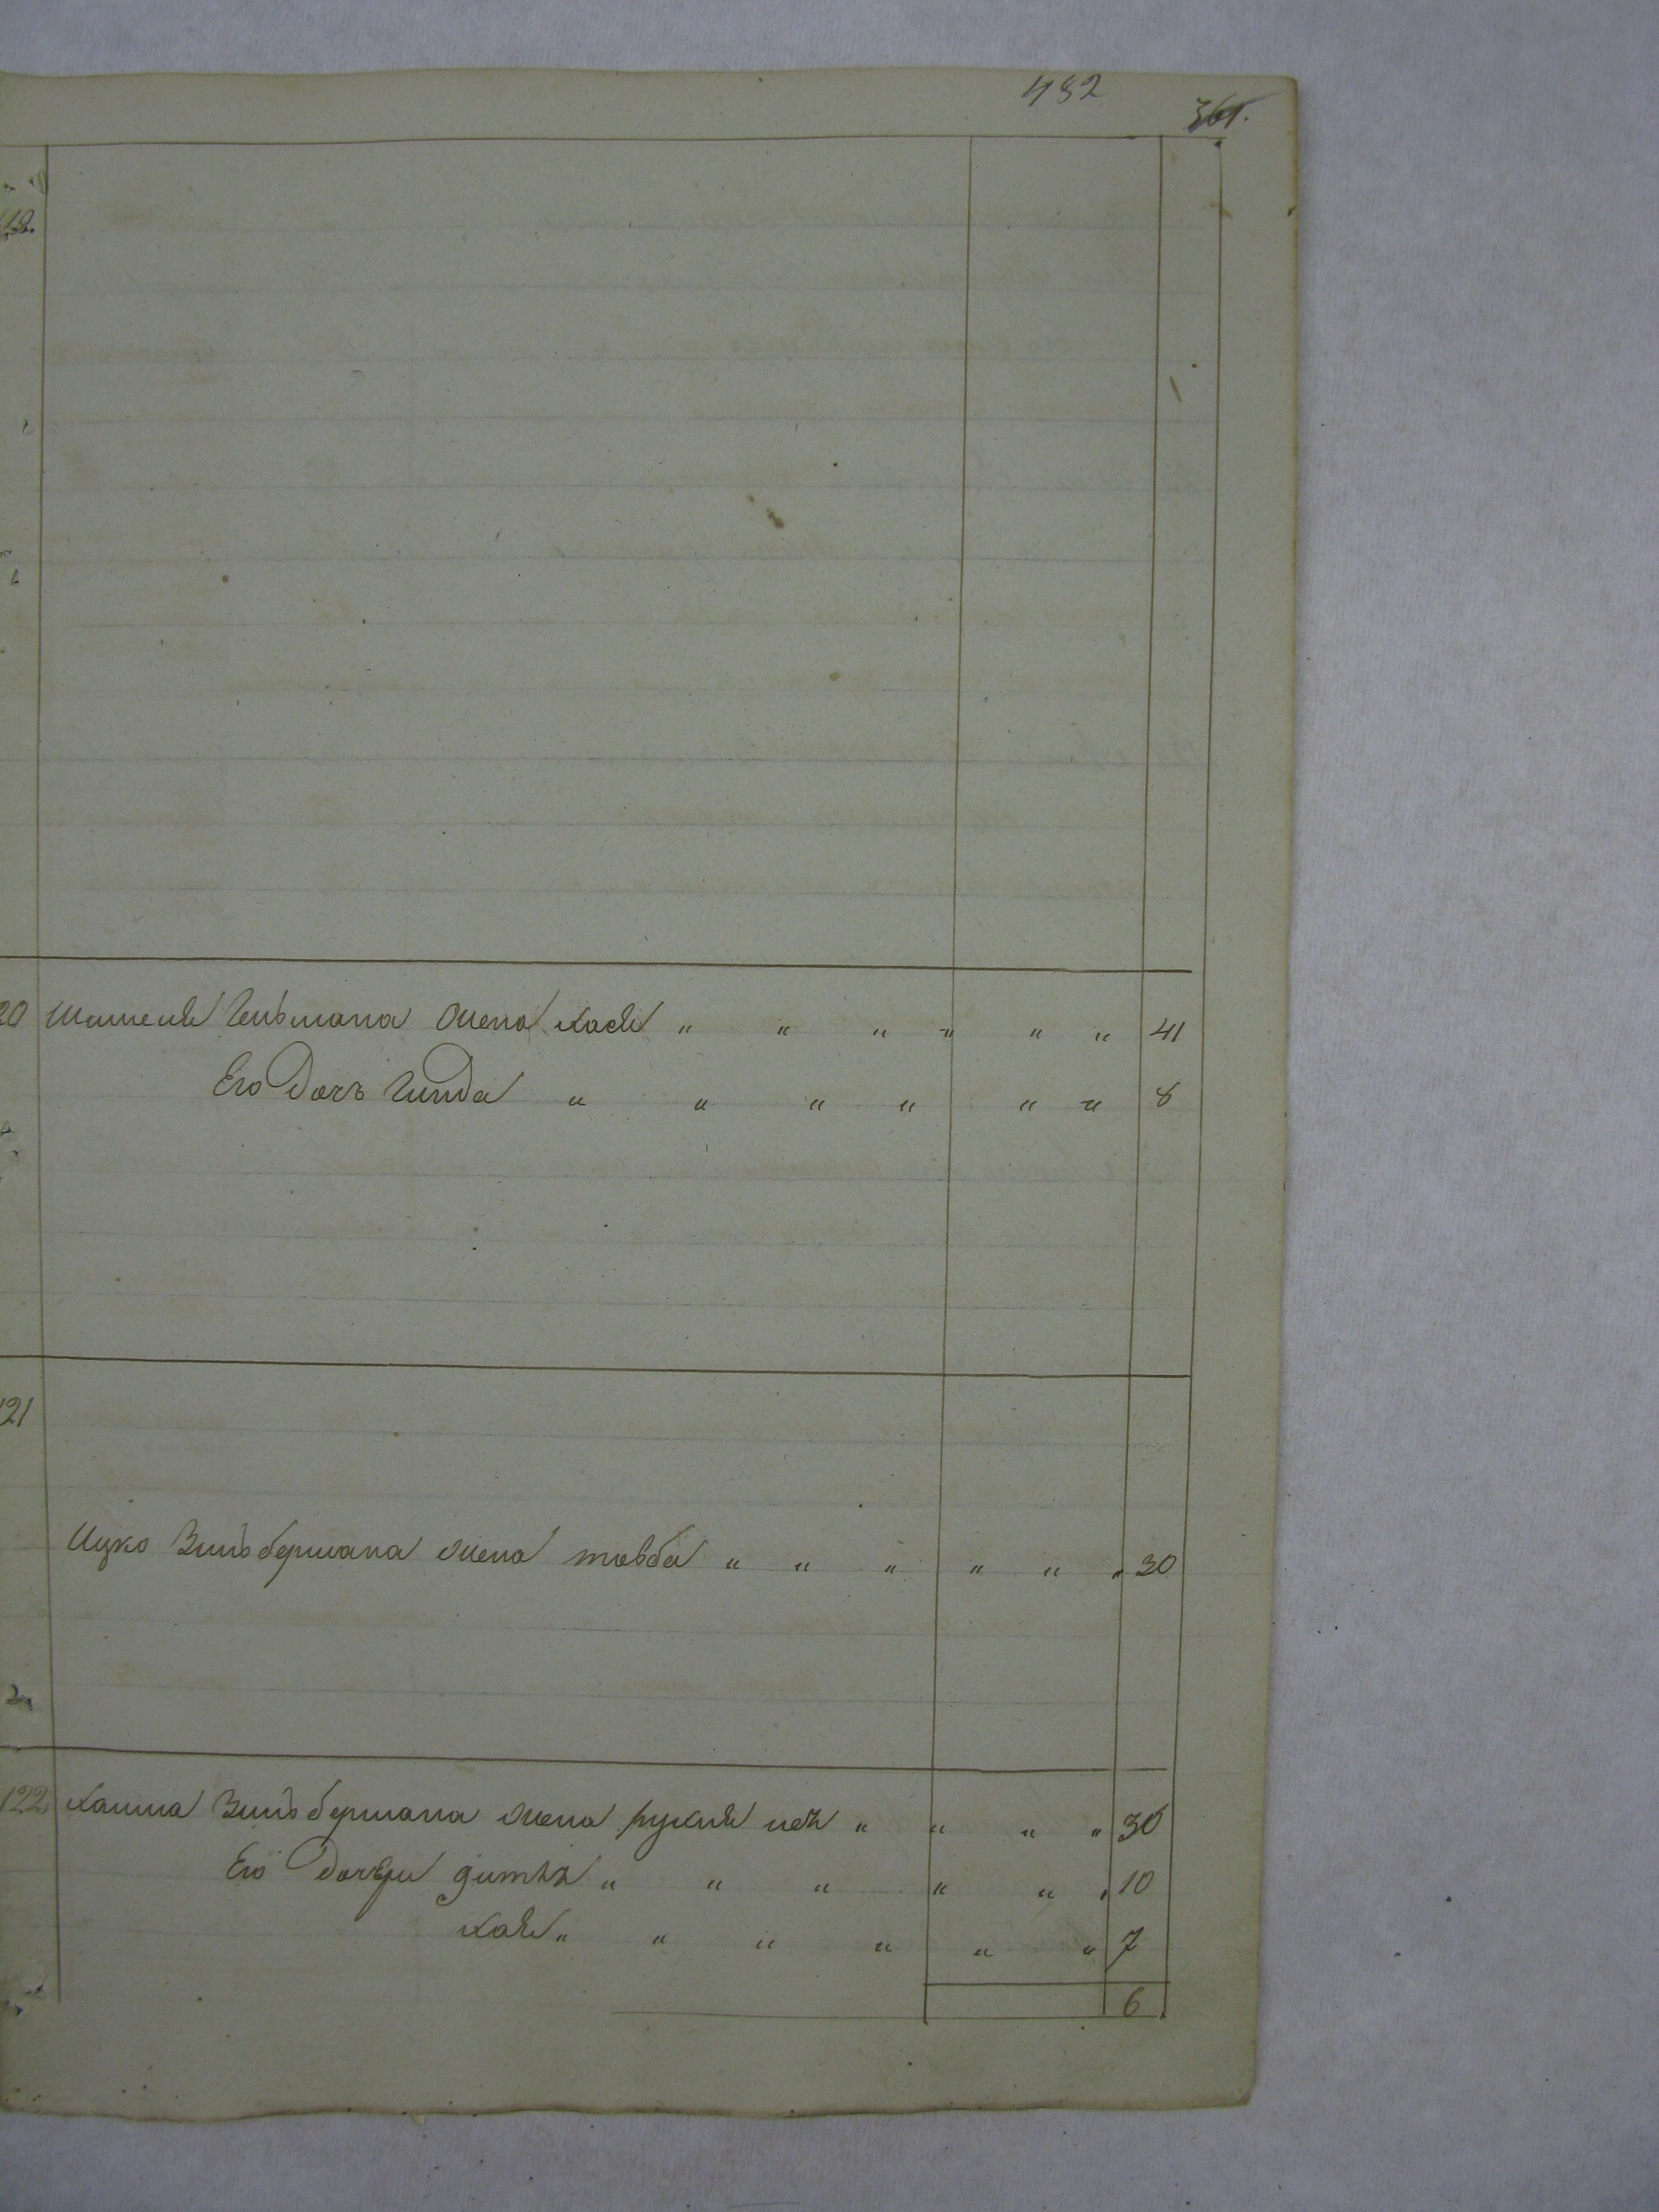 482
361.
20 Гельмана жена хася " " " " " " 41
Его Дочь Гинда " " " " " " 8
121
Ицко Зильбермана жена товба " " " " " " 30
122 Хаима Зильбермана жена рухля " " " " 30
Его Дочери " " " " " " 10
Хая " " " " " " 7
6